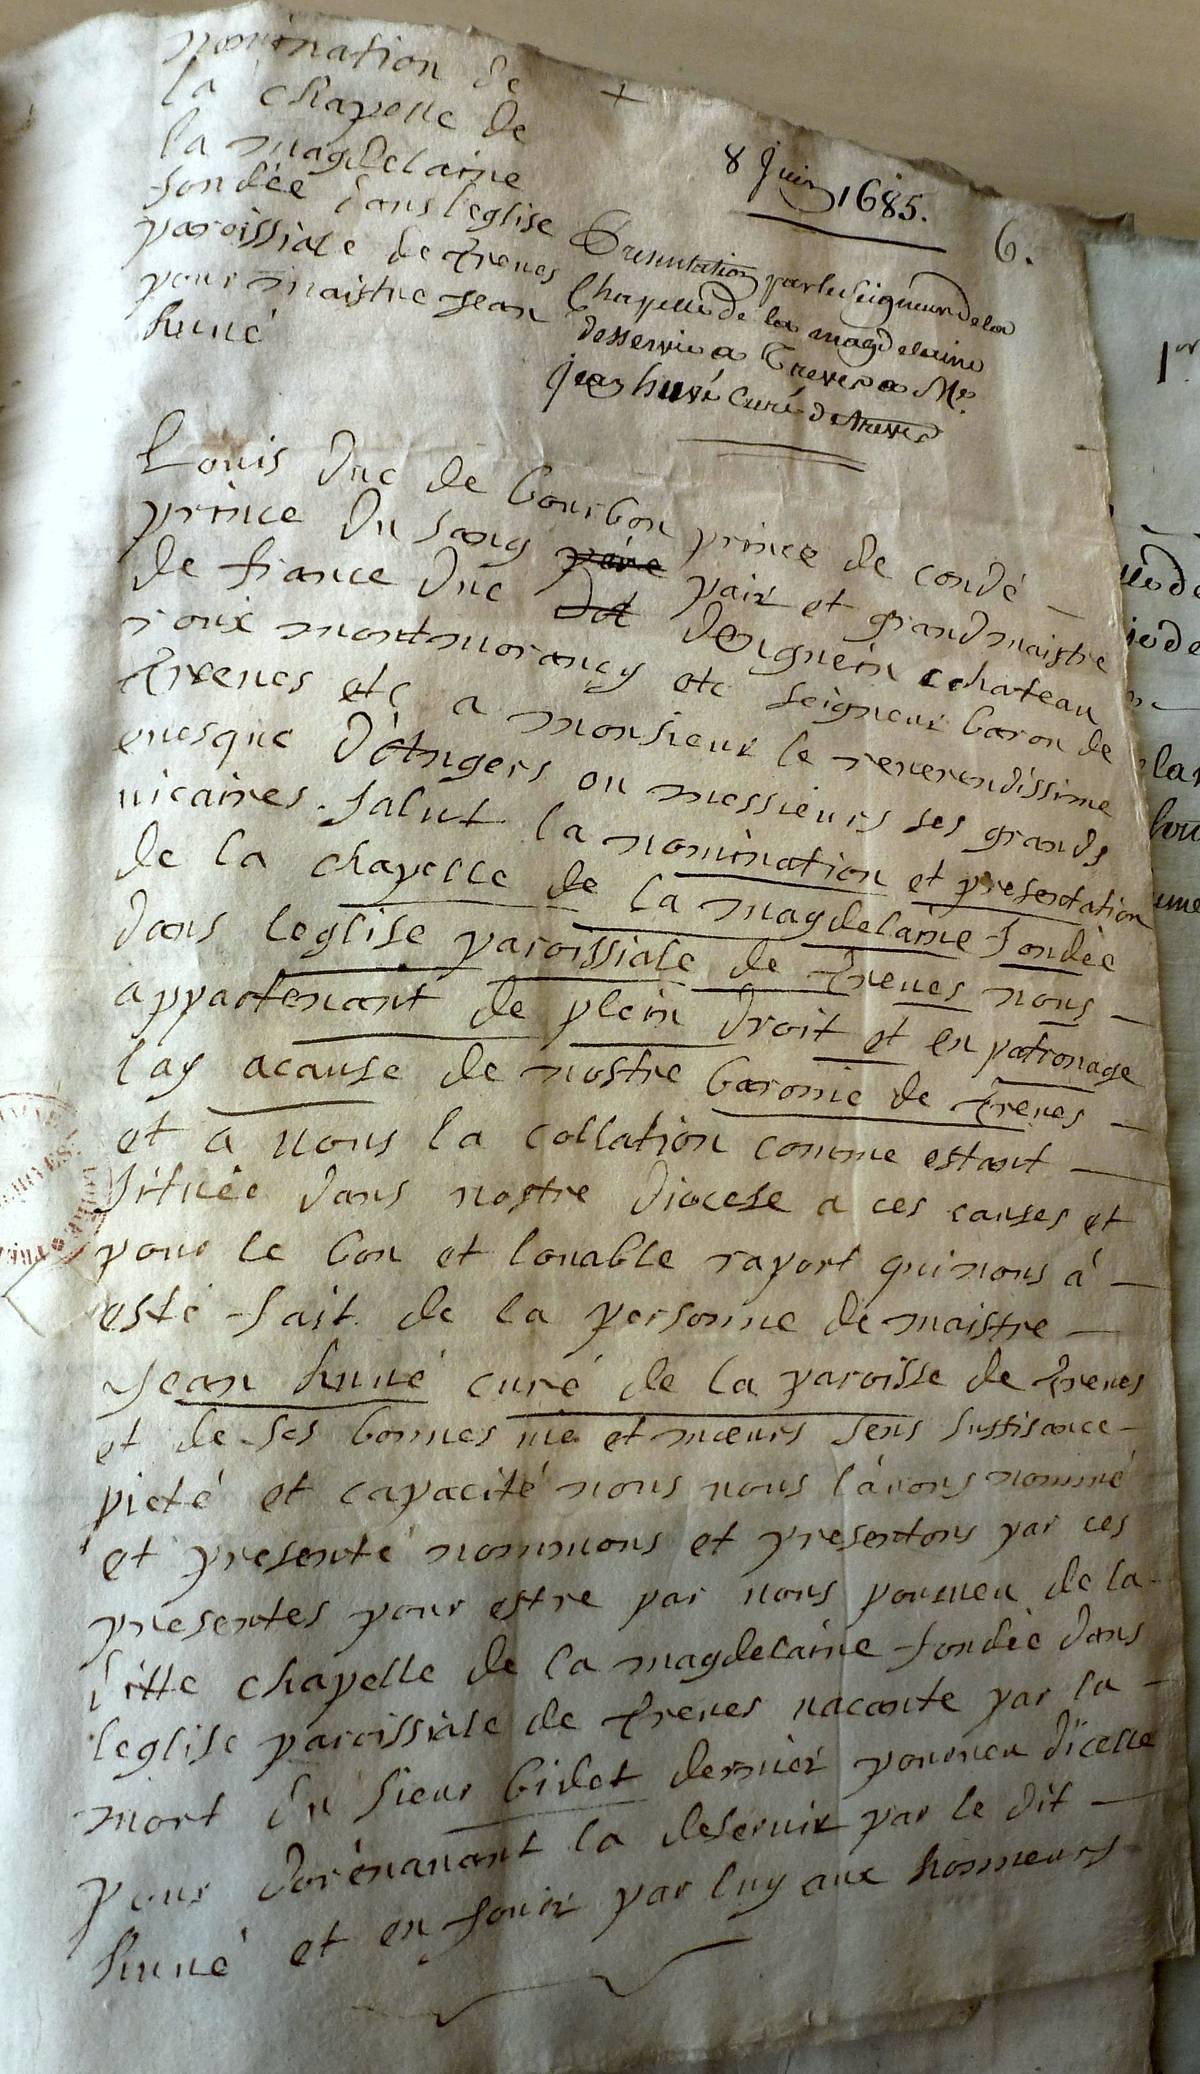 nomination de
la chapelle de
la magdelaine
fondée dans leglise
paroissiale de treues
pour maistre Jean
huué
+
8 Juin 1685.
6.
Presentation par le seigneur de la
Chapelle de la magdelaine
desservie a Treves a Mre.
jean huvé Curé de treves
Louis duc de bourbon prince de condé
prince du sang paire pair et grandmaistre
de france duc dot denguein cchateau
roux montmorancy etc seigneur baron de
treues etc a monsieur le reuerendissime
euesque d'Angers ou messieurs ses grands
uicaires. salut la nomination et presentation
de la chapelle de la magdelaine fondée
dans leglise paroissiale de treues nous
appartenant de plein droit et en patronage
lay acause de nostre baronie de treues
et a uous la collation comme estant
situeé dans uostre diocese a ces causes et
pour le bon et louable raport qui nous à
esté fait de la personne de maistre
Jean huué curé de la paroisse de treues
et de ses bonnes uie et mœurs sens suffisance
pieté et capacité nous uous láuons nommé
et presenté nommons et presentons par ces
presentes pour estre par uous pourueu de la
ditte chapelle de la magdelaine fondée dans
leglise paroissiale de treues uacante par la
mort du sieur bidet dernier pourueu dicelle
pour dorénauant la deseruir par le dit
huué et en jouir par luy aux honneurs
1er